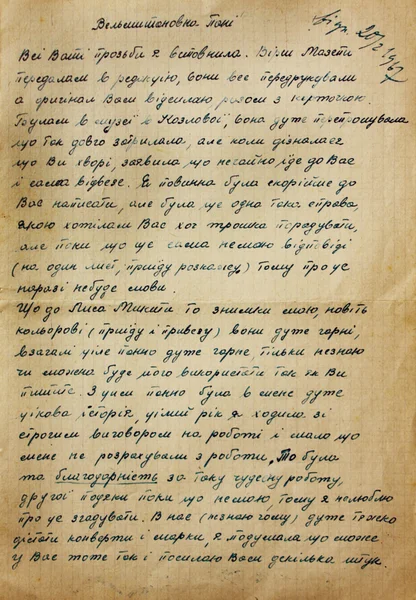 Вельмишановна Пані
Відп. 20/2 1967
Всі Ваші прозьби я виповнила. Вірші Мазепи
передалам в редакцію, вони все передрукували
а оригінал Вам відсилаю разом з карточкою.
Булам в музеї в Козлової, вона дуже перепрошувала
що так довго затримала, але коли дізналася
що Ви хворі, заявила що негайно їде до Вас
і сама відвезе. Я повинна була скорійше до
Вас написати, але була ще одна така справа,
якою хотілам Вас хоч трошка порадувати,
але поки що ще сама немаю відповіді
(на один лист, прийду розкажу) тому про це
наразі небуде мови.
Що до Лиса Микити то знимки маю, навіть
кольорові (прийду і привезу) вони дуже гарні,
взагалі ціле панно дуже гарне, тільки незнаю
чи можна буде його використати так як Ви
пишете. З цим панно була в мене дуже
цікава історія, цілий рік я ходила зі
строгим виговором на роботі і мало що
мене не розрахували з роботи. То була
та благодарность за таку чудесну роботу,
другої подяки поки що немаю, тому я нелюблю
про це згадувати. В нас (незнаю чому) дуже тяжко
дістати конверти і марки, я подумала що може
у Вас тоже так і посилаю Вам декілька штук.